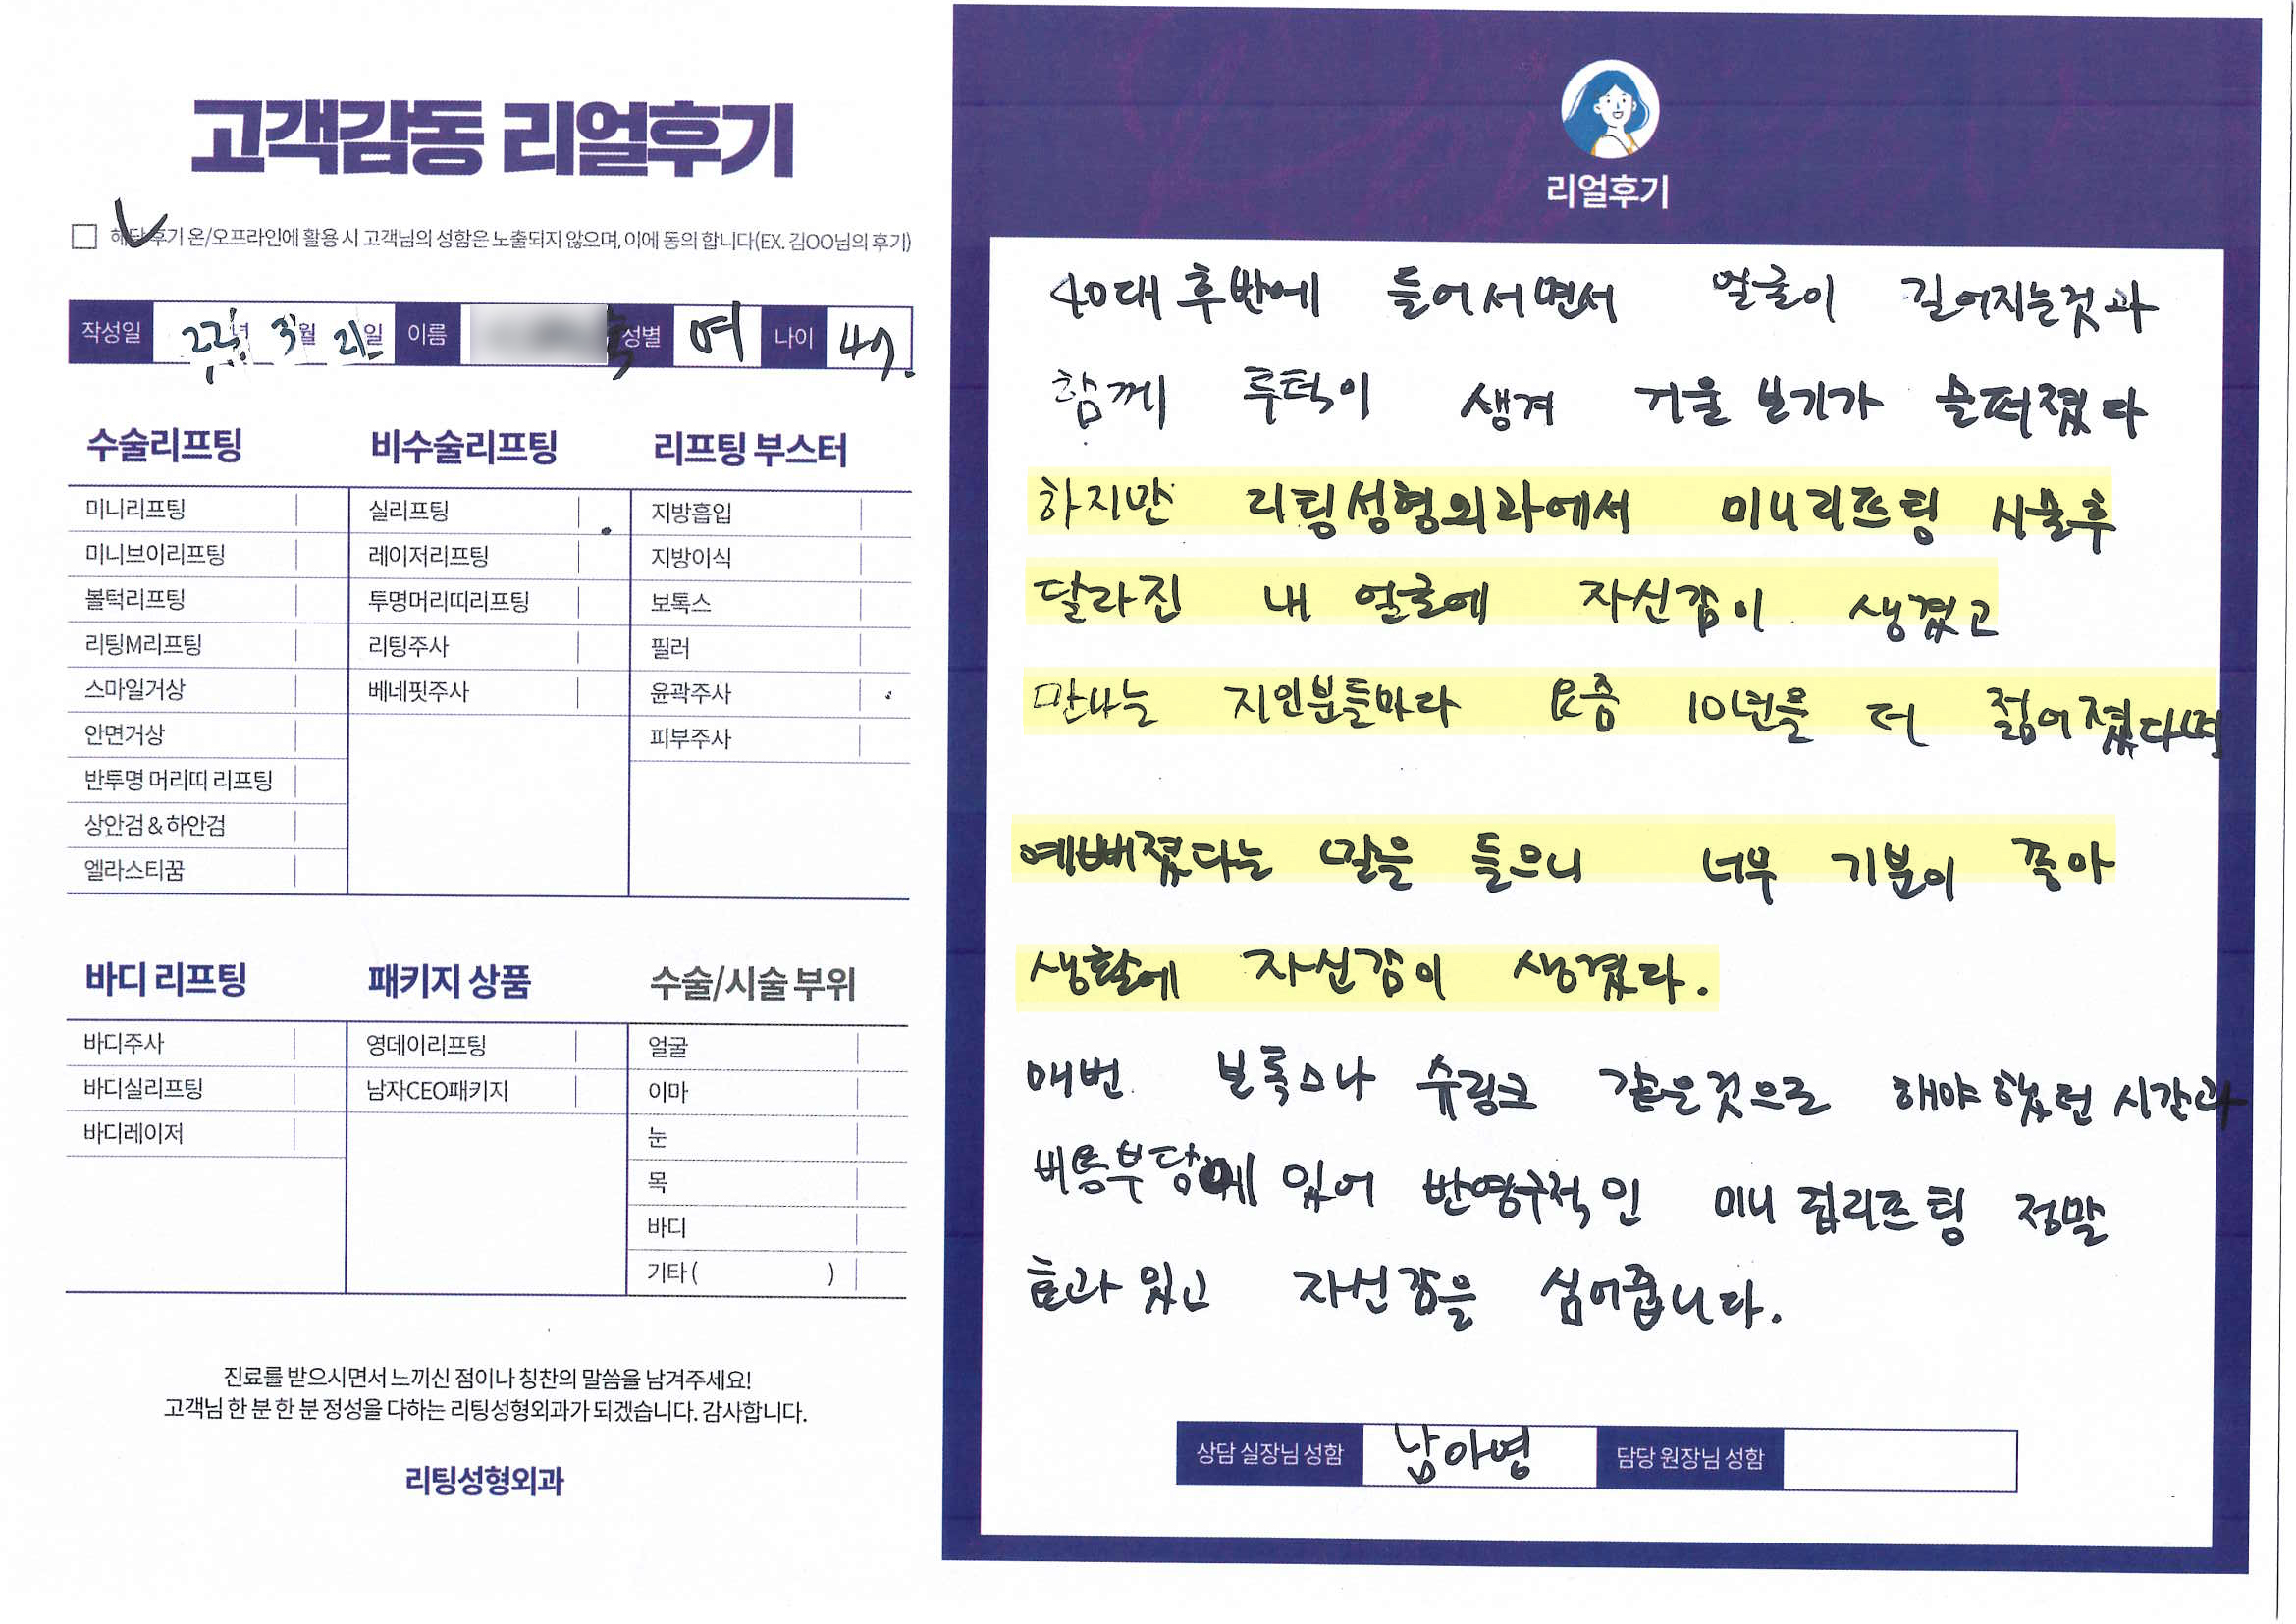 고객감동 리얼후기
해당 후기 온/오프라인에 활용 시 고객님의 성함은 노출되지 않으며, 이에 동의 합니다(EX. 김OO님의 후기)
작성일 22년 3월 21일 이름 성별 여 나이 47.
수술리프팅 비수술리프팅 리프팅 부스터
미니리프팅 실리프팅 지방흡입
미니브이리프팅 레이저리프팅 지방이식
볼턱리프팅 투명머리띠리프팅 보톡스
리팅M리프팅 리팅주사 필러
스마일거상 베네핏주사 윤곽주사
안면거상 피부주사
반투명 머리띠 리프팅
상안검 & 하안검
엘라스티꿈
바디 리프팅 패키지 상품 수술/시술 부위
바디주사 영데이리프팅 얼굴
바디실리프팅 남자CEO패키지 이마
바디레이저 눈
목
바디
기타 ( )
진료를 받으시면서 느끼신 점이나 칭찬의 말씀을 남겨주세요!
고객님 한 분 한 분 정성을 다하는 리팅성형외과가 되겠습니다. 감사합니다.
리팅성형외과
리얼후기
40대 후반에 들어서면서 얼굴이 길어지는것과
함께 투턱이 생겨 거울 보기가 슬퍼졌다
하지만 리팅성형외과에서 미니리프팅 시술후
달라진 내 얼굴에 자신감이 생겼고
만나는 지인분들마다 요즘 10년은 더 젊어졌다며
예뻐졌다는 말을 들으니 너무 기분이 좋아
생활에 자신감이 생겼다.
매번 보톡스나 슈링크 같은것으로 해야 했던 시간과
비용부담에 있어 반영구적인 미니 립리프팅 정말
효과 있고 자신감을 심어줍니다.
상담 실장님 성함 남아영 담당 원장님 성함